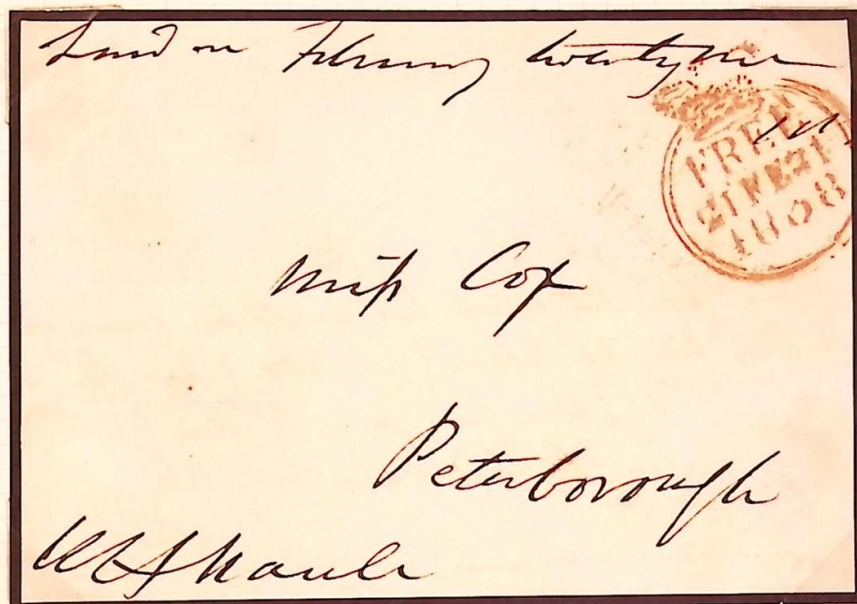 London February twenty one
FREE
21 FE 21
1838
Miss Cox
Peterborough
W H Maule